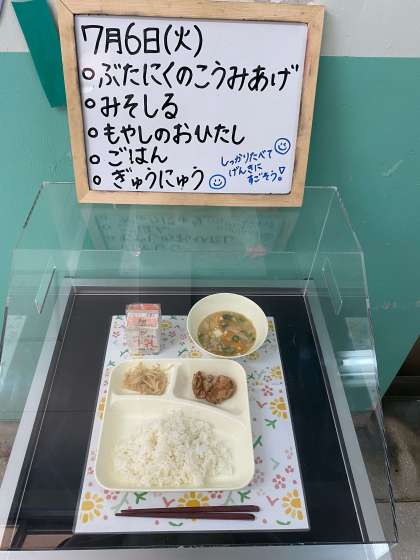 7月6日(火)
○ぶたにくのこうみあげ
○みそしる
○もやしのおひたし
○ごはん
○ぎゅうにゅう
しっかりたべて
げんきに
すごそう!